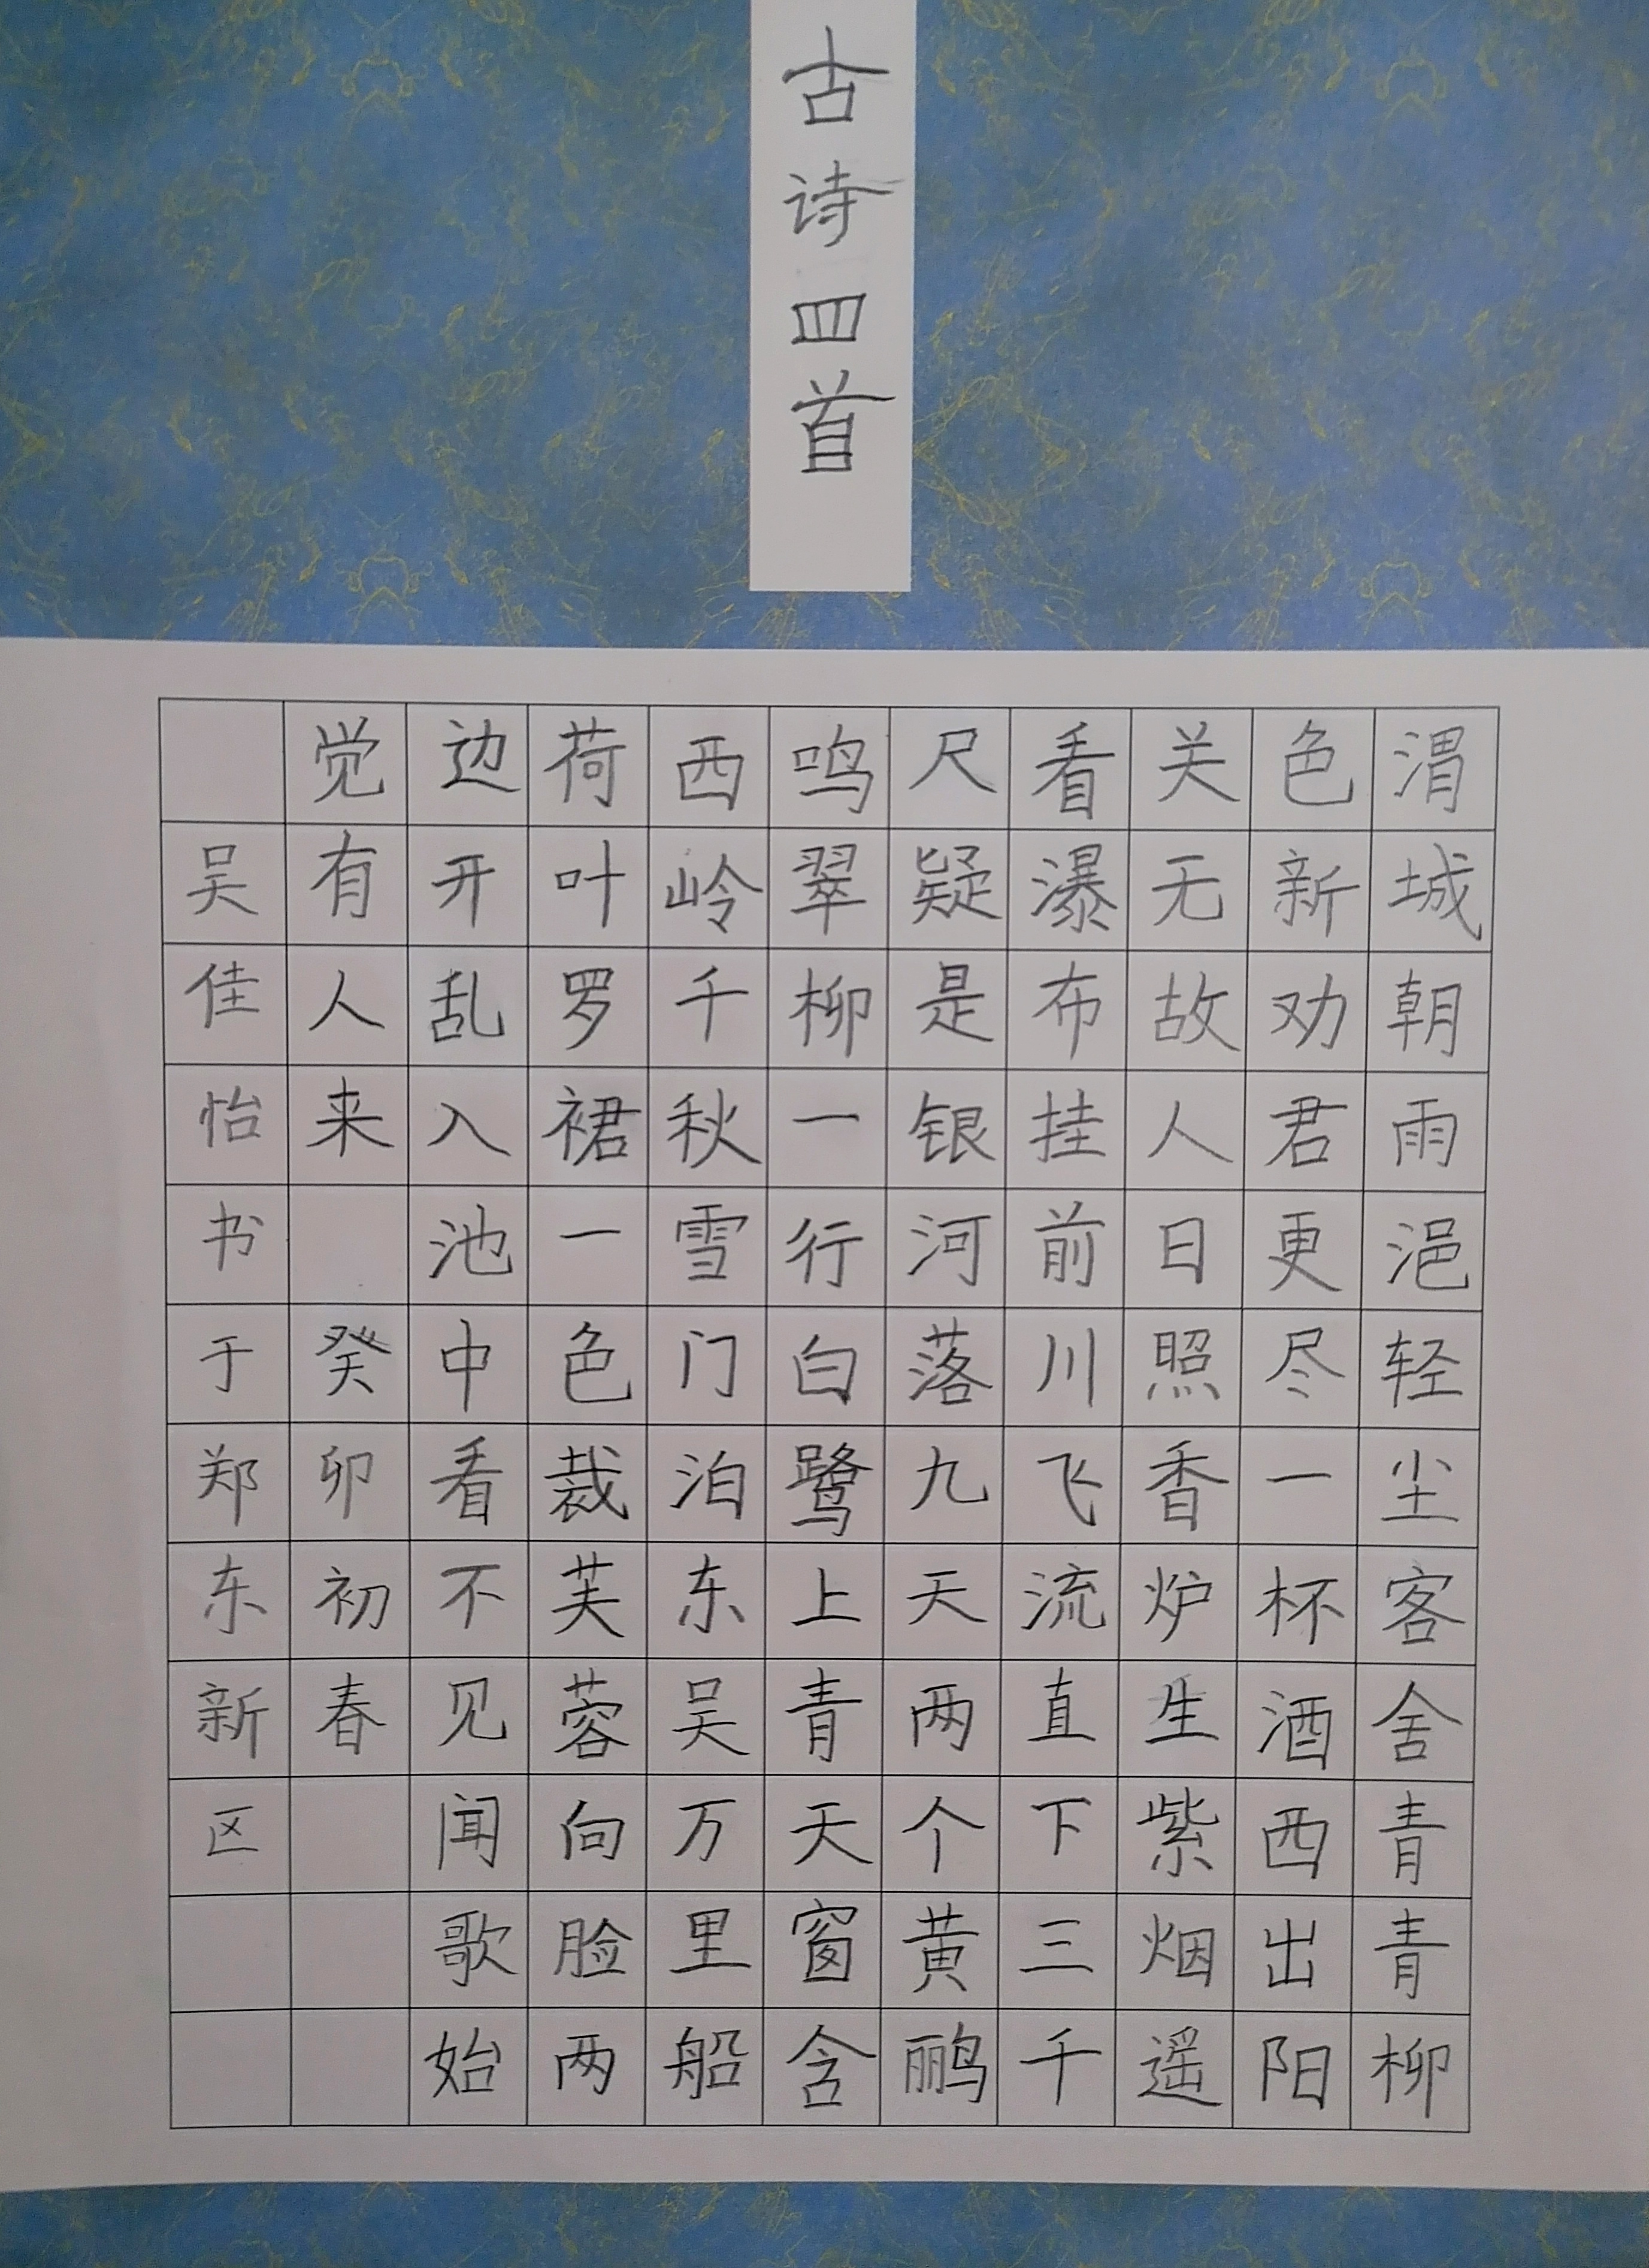 古诗四首
渭城朝雨浥轻尘客舍青青柳
色新劝君更尽一杯酒西出阳
关无故人日照香炉生紫烟遥
看瀑布挂前川飞流直下三千
尺疑是银河落九天两个黄鹂
鸣翠柳一行白鹭上青天窗含
西岭千秋雪门泊东吴万里船
荷叶罗裙一色裁芙蓉向脸两
边开乱入池中看不见闻歌始
觉有人来 癸卯初春
吴佳怡书于郑东新区